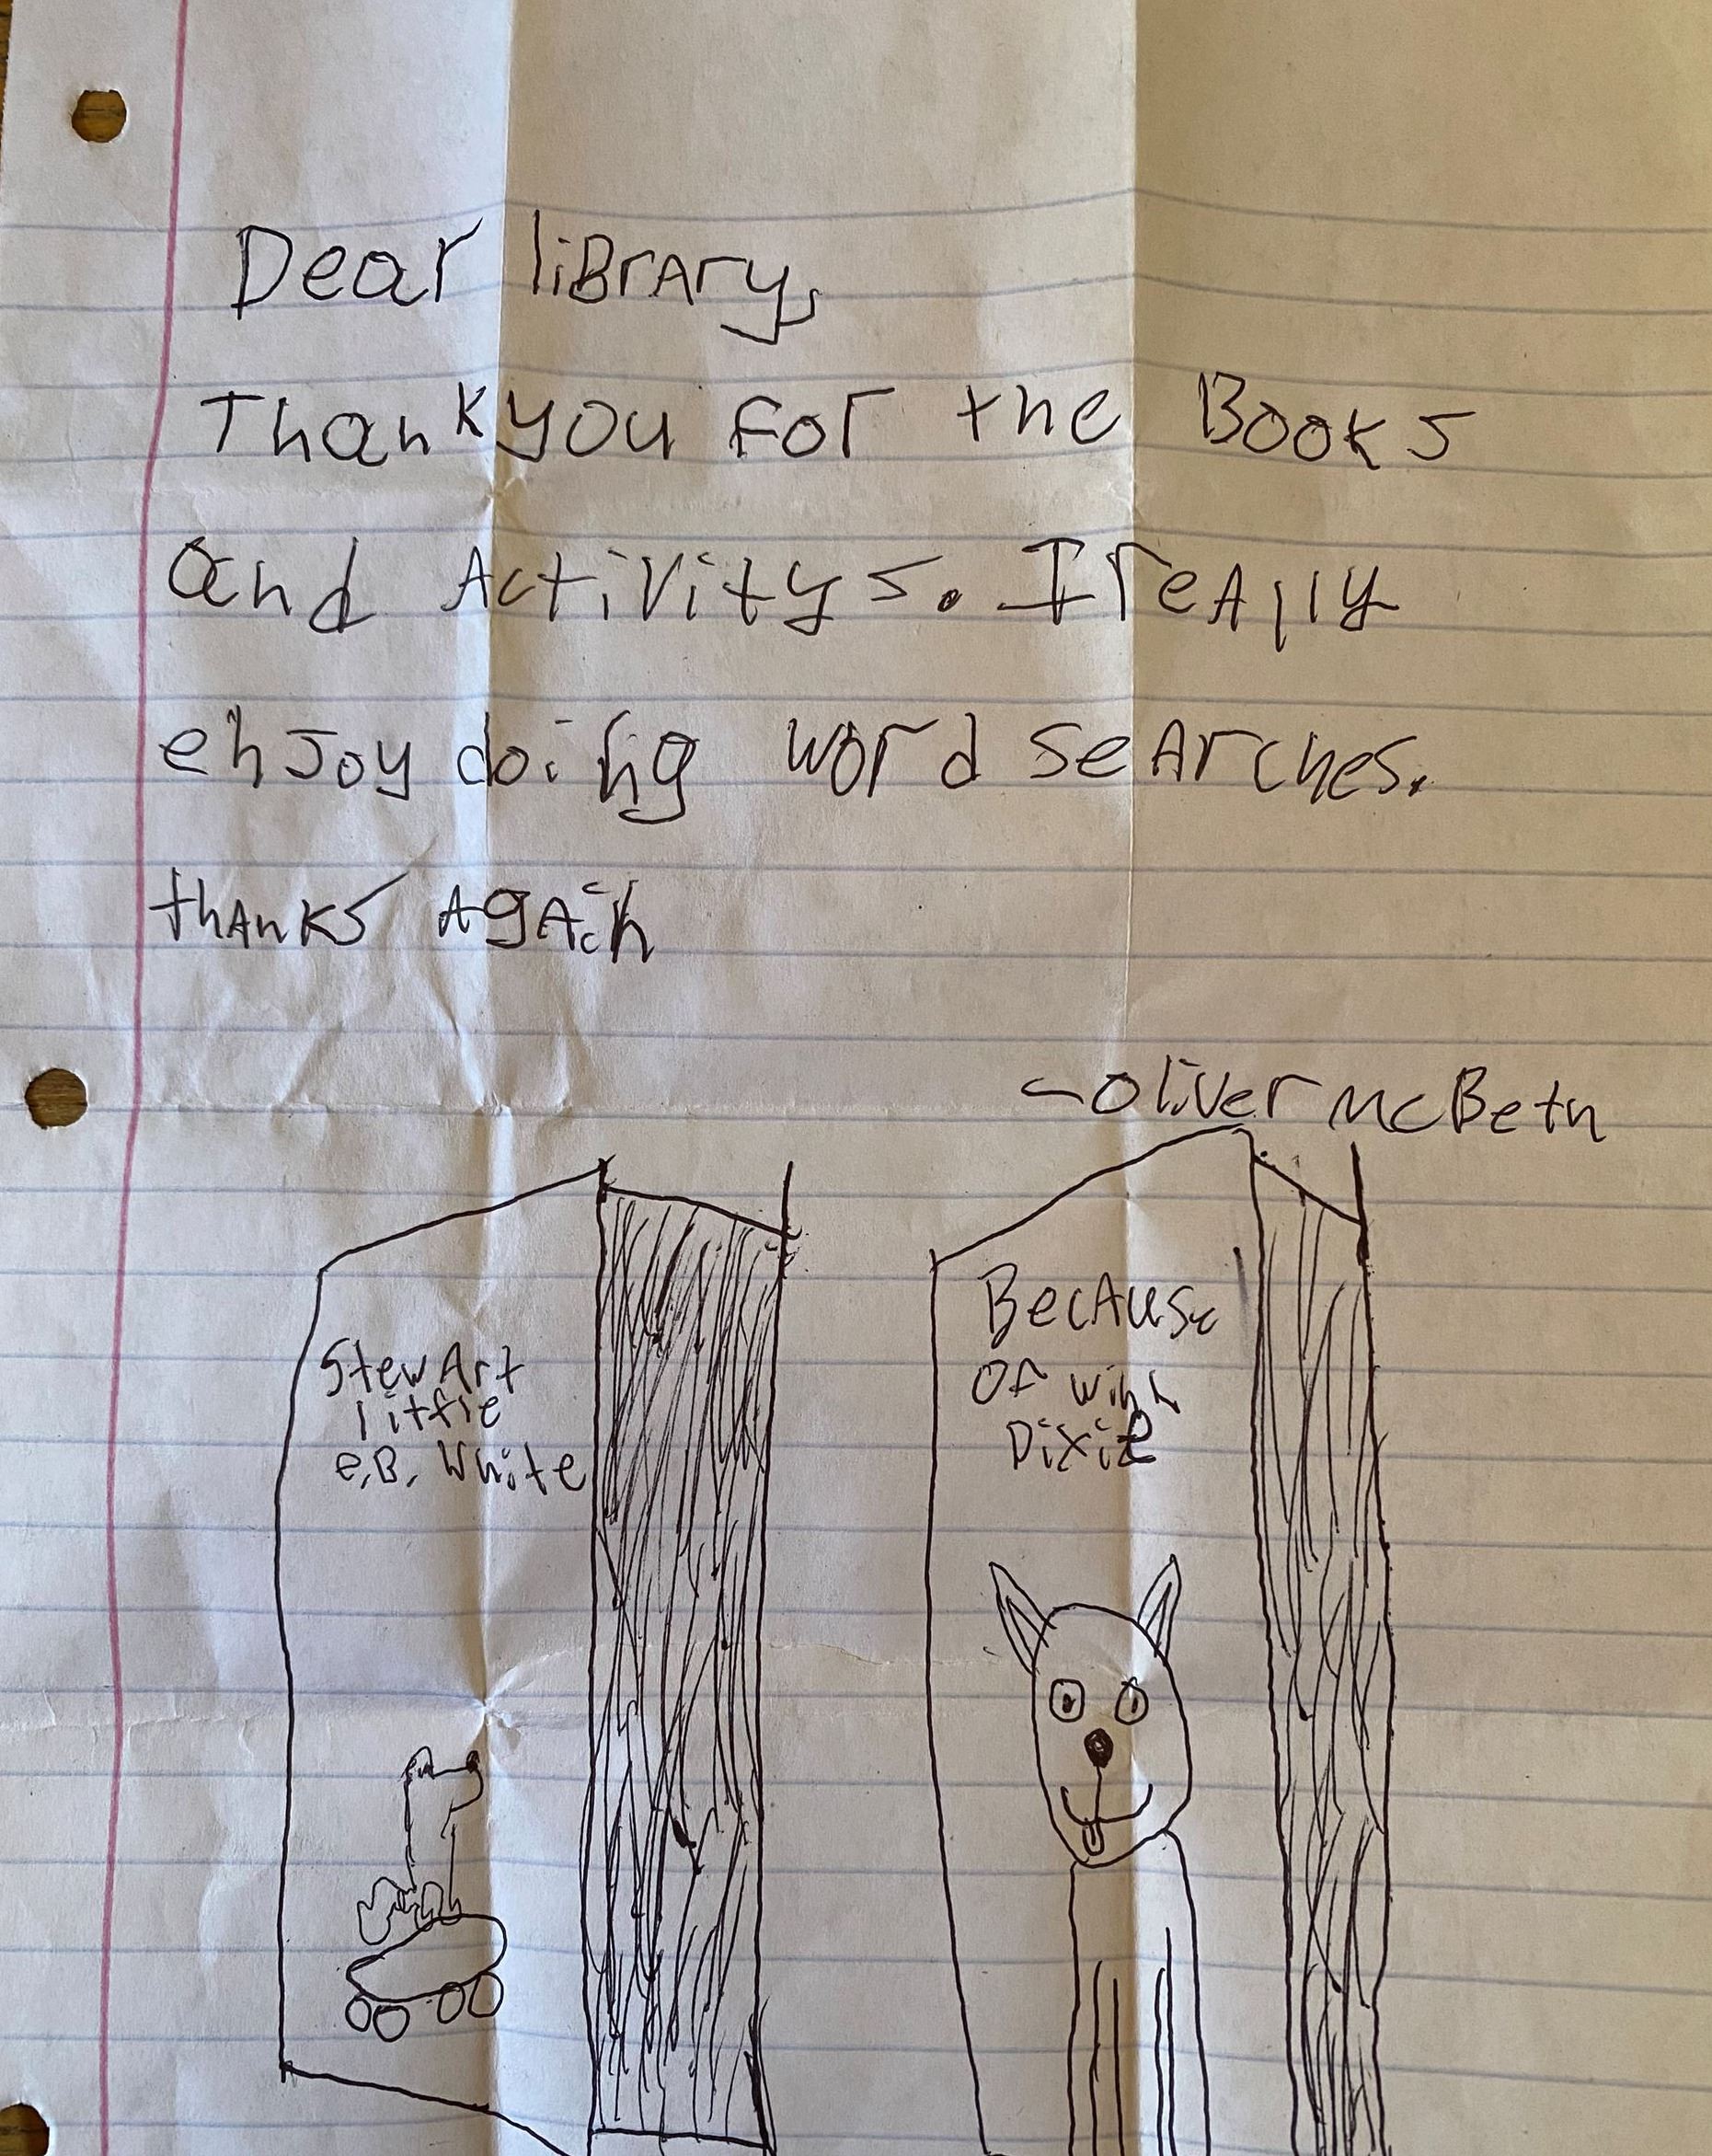 Dear liBrAry,
Thank you for the Books
and Activitys. I reAlly
enJoy doing word seArches.
thAnks AgAin
- Oliver McBeth
StewArt
little
e.B. White
BecAuse
Of Winn
Dixie